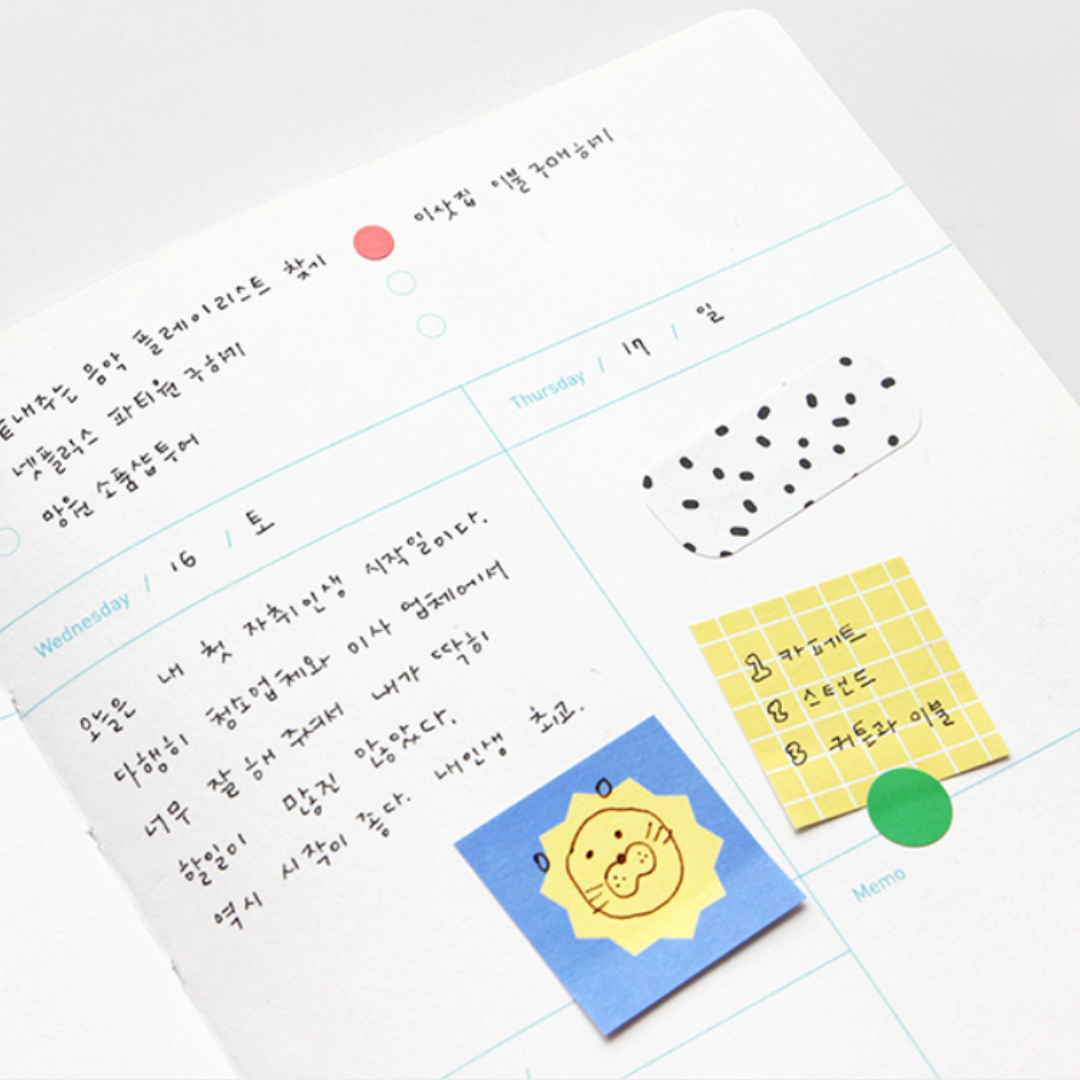 음악 플레이리스트 찾기
넷플릭스 파티원 구하기
망원 소품샵투어
이삿집 이불구매하기
Wednesday / 16 / 토
오늘은 내 첫 자취인생 시작일이다.
다행히 청소업체와 이사 업체에서
너무 잘 해 주셔서 내가 딱히
할일이 많진 않았다.
역시 시작이 좋다. 내인생 최고.
Thursday / 17 / 일
1 카페트
2 스탠드
3 커튼과 이불
Memo